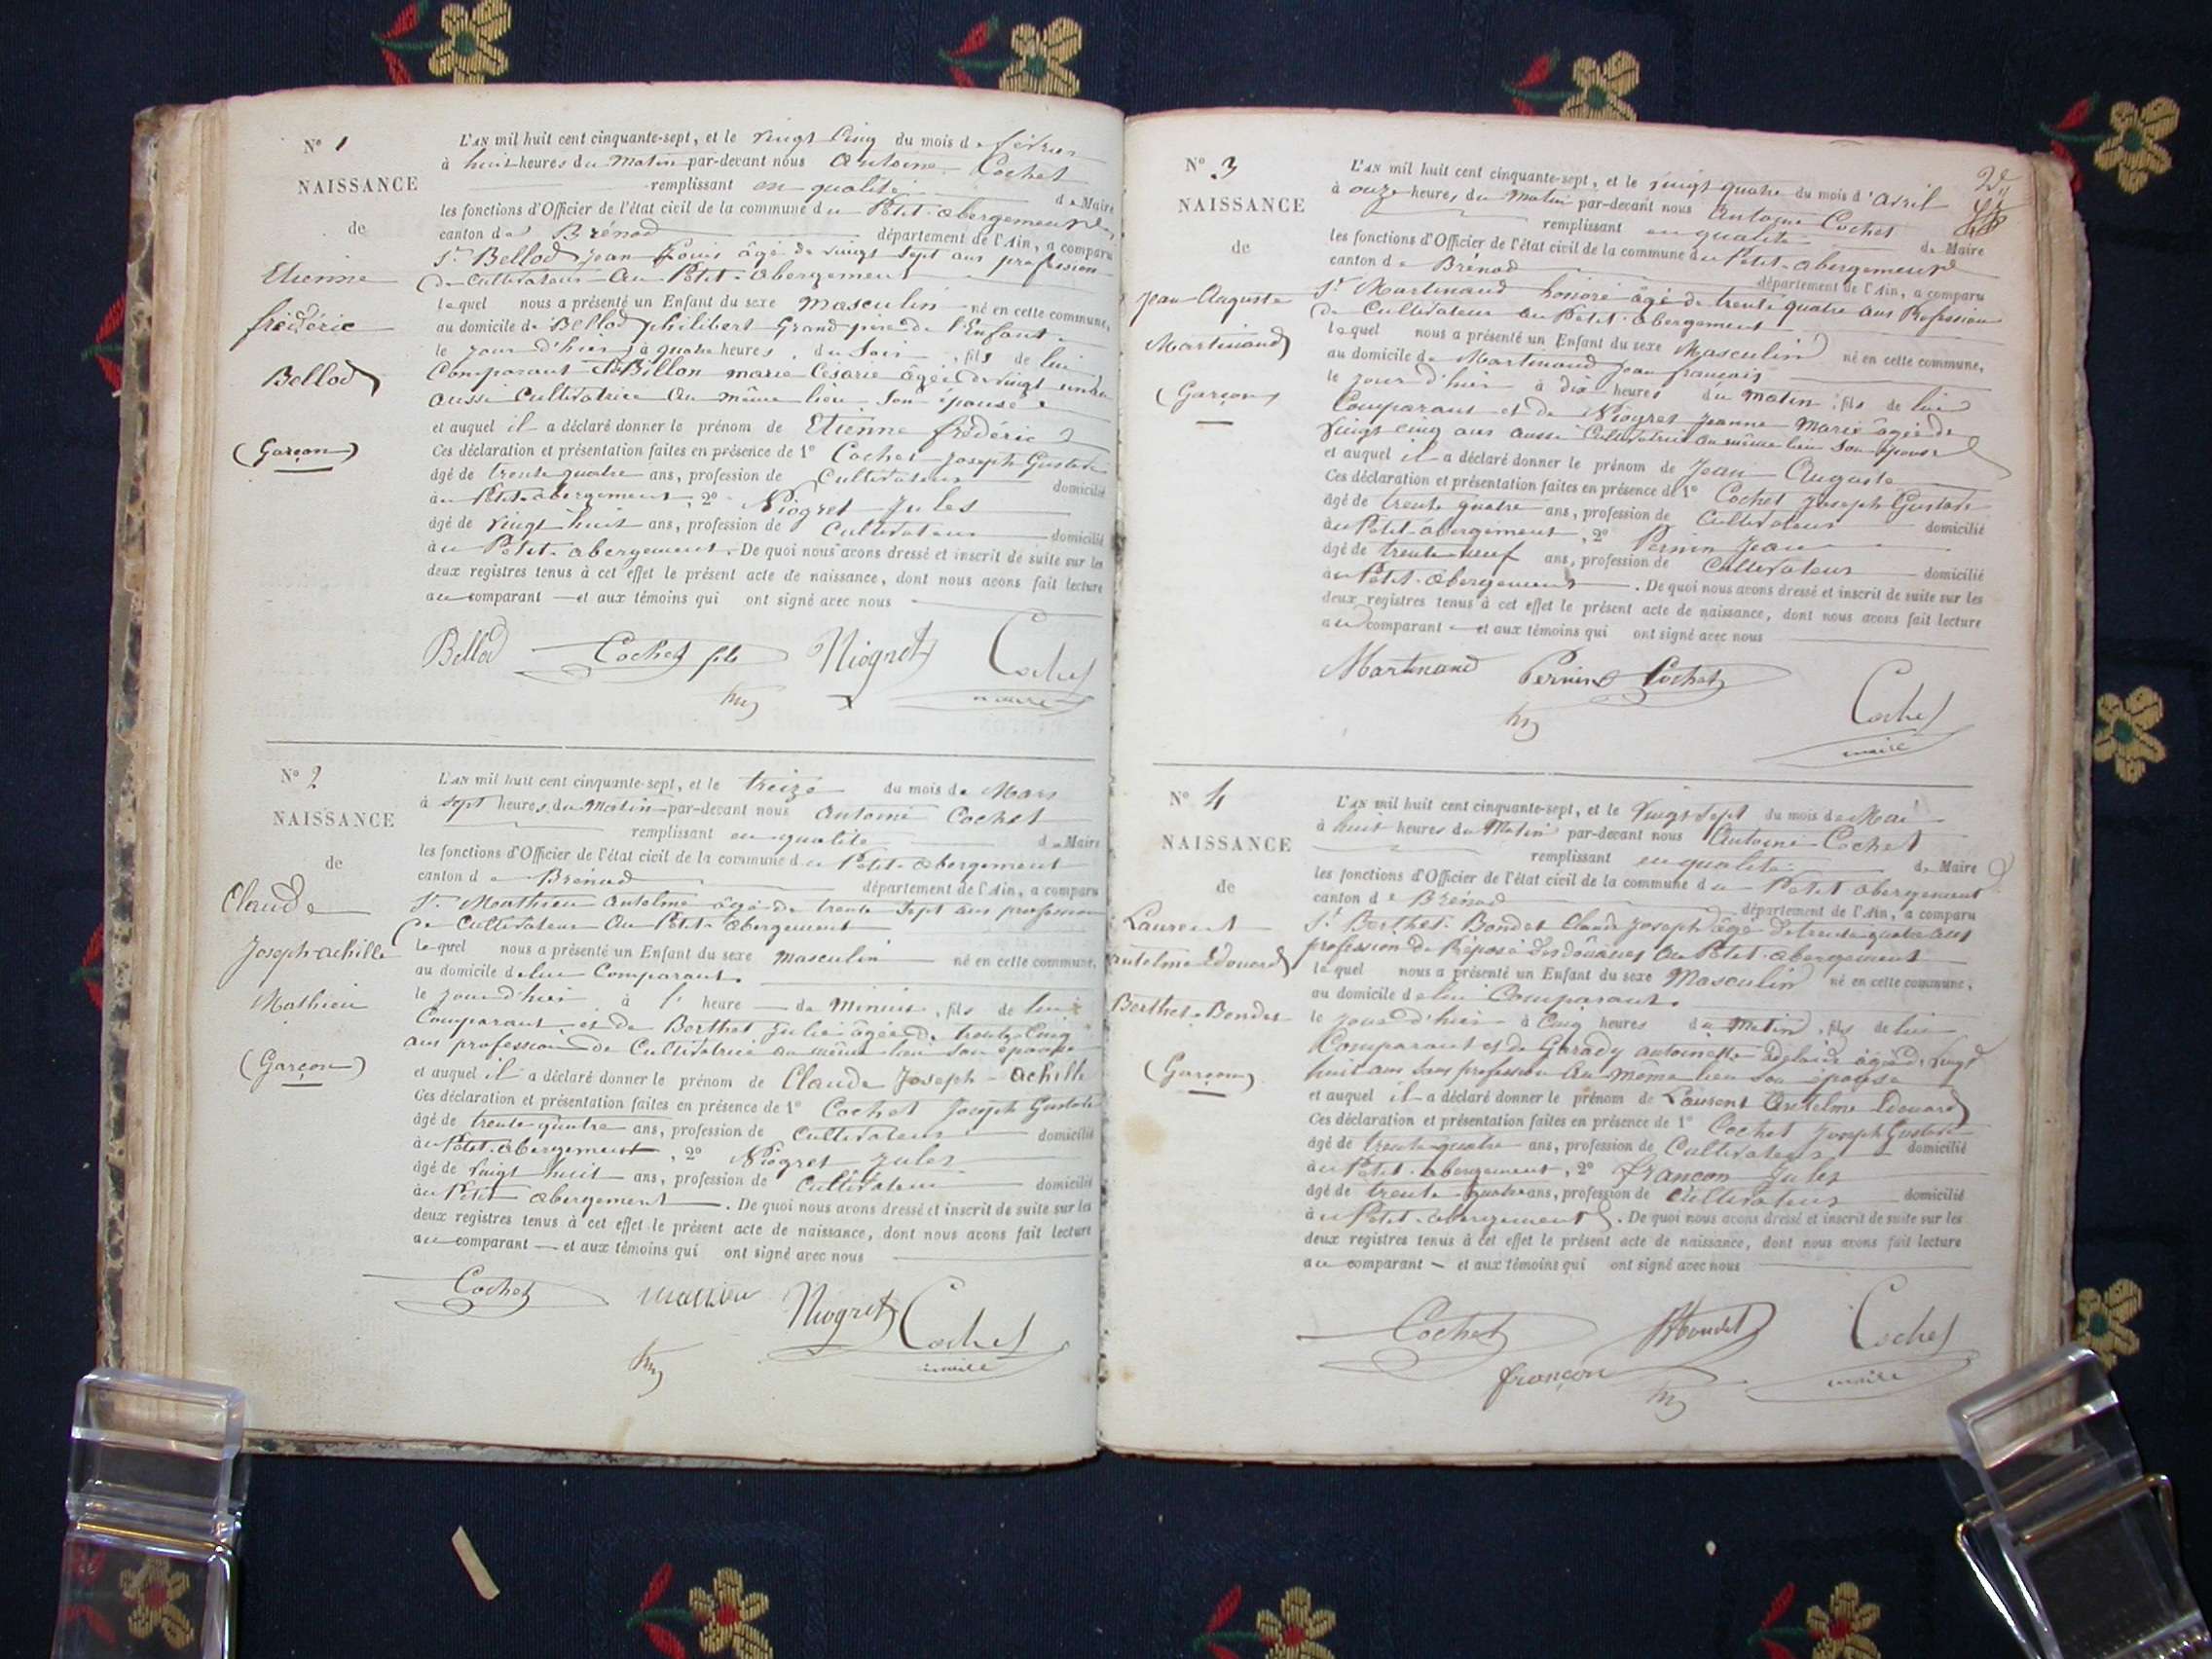 N° 1
NAISSANCE
de
Etienne
frédéric
Bellod
(Garçon)
L'AN mil huit cent cinquante-sept, et le vingt Cinq du mois de février
à huit heures du Matin par-devant nous Antoine Cochet
remplissant en qualité de Maire
les fonctions d'Officier de l'état civil de la commune du Petit-abergement
canton de Brénod département de l'Ain, a comparu
Sr Bellod jean Louis âgé de vingt sept ans profession
de Cultivateur Au Petit-abergement
lequel nous a présenté un Enfant du sexe Masculin né en cette commune,
au domicile de Bellod philibert Grand père de l'Enfant
le jour d'hier à quatre heures, du Soir, fils de lui
Comparant Billon marie Césarie âgée de vingt
aussi Cultivatrice Au même lieu Son épouse
et auquel il a déclaré donner le prénom de Etienne frédéric
Ces déclaration et présentation faites en présence de 1° Cochet Joseph Gustave
âgé de trente quatre ans, profession de Cultivateur domicilié
au Petit-abergement, 2° Niogret Jules
âgé de vingt huit ans, profession de Cultivateur domicilié
au Petit-abergement. De quoi nous avons dressé et inscrit de suite sur les
deux registres tenus à cet effet le présent acte de naissance, dont nous avons fait lecture
au comparant et aux témoins qui ont signé avec nous
Bellod Cochet fils Niogret Cochet
maire
N° 2
NAISSANCE
de
Claude
Joseph-achille
Mathieu
(Garçon)
L'AN mil huit cent cinquante-sept, et le treize du mois de Mars
à sept heures du Matin par-devant nous Antoine Cochet
remplissant en qualité de Maire
les fonctions d'Officier de l'état civil de la commune du Petit-abergement
canton de Brénod département de l'Ain, a comparu
Sr Matthieu Antelme âgé de trente sept ans profession
de Cultivateur Au Petit-abergement
lequel nous a présenté un Enfant du sexe masculin né en cette commune,
au domicile de lui Comparant
le jour d'hier à l' heure de Minuit, fils de lui
Comparant et de Berthet Julie âgée de trente Cinq
ans profession de Cultivatrice au même lieu son épouse
et auquel il a déclaré donner le prénom de Claude Joseph-achille
Ces déclaration et présentation faites en présence de 1° Cochet Joseph Gustave
âgé de trente quatre ans, profession de Cultivateur domicilié
au Petit-abergement, 2° Niogret Jules
âgé de vingt huit ans, profession de Cultivateur domicilié
au Petit abergement. De quoi nous avons dressé et inscrit de suite sur les
deux registres tenus à cet effet le présent acte de naissance, dont nous avons fait lecture
au comparant et aux témoins qui ont signé avec nous
Cochet Niogret Cochet
maire
N° 3
NAISSANCE
de
Jean-Auguste
Martinand
(Garçon)
L'AN mil huit cent cinquante-sept, et le vingt quatre du mois d'avril
à onze heures du Matin par-devant nous Antoine Cochet
remplissant en qualité de Maire
les fonctions d'Officier de l'état civil de la commune du Petit-abergement
canton de Brénod département de l'Ain, a comparu
Sr Martinand honoré âgé de trente quatre ans Profession
de Cultivateur au Petit-abergement
lequel nous a présenté un Enfant du sexe Masculin né en cette commune,
au domicile de Martinand Jean françois
le jour d'hier à dix heures du matin, fils de lui
Comparant et de Niogret Jeanne Marie âgée de
vingt cinq ans aussi Cultivatrice au même lieu Son épouse
et auquel il a déclaré donner le prénom de Jean Auguste
Ces déclaration et présentation faites en présence de 1° Cochet Joseph Gustave
âgé de trente quatre ans, profession de Cultivateur domicilié
au Petit-abergement, 2° Pernin Jean
âgé de trente neuf ans, profession de Cultivateur domicilié
au Petit-abergement. De quoi nous avons dressé et inscrit de suite sur les
deux registres tenus à cet effet le présent acte de naissance, dont nous avons fait lecture
au comparant et aux témoins qui ont signé avec nous
Martinand Pernin Cochet Cochet
maire
N° 4
NAISSANCE
de
Laurent
antelme Edouard
Berthet-Bondet
(Garçon)
L'AN mil huit cent cinquante-sept, et le vingt sept du mois de Mai
à huit heures du Matin par-devant nous Antoine Cochet
remplissant en qualité de Maire
les fonctions d'Officier de l'état civil de la commune du Petit abergement
canton de Brénod département de l'Ain, a comparu
Sr Berthet-Bondet Claude Joseph âgé de trente quatre ans
profession de Préposé des douanes Au Petit-abergement
lequel nous a présenté un Enfant du sexe Masculin né en cette commune,
au domicile de lui Comparant.
le jour d'hier à Cinq heures du Matin, fils de lui
Comparant et de antoinette âgée de vingt
huit ans sans profession Au même lieu son épouse
et auquel il a déclaré donner le prénom de Laurent Antelme Edouard
Ces déclaration et présentation faites en présence de 1° Cochet Joseph Gustave
âgé de trente quatre ans, profession de Cultivateur domicilié
au Petit-abergement, 2° françon Jules
âgé de trente quatre ans, profession de Cultivateur domicilié
au Petit-abergement. De quoi nous avons dressé et inscrit de suite sur les
deux registres tenus à cet effet le présent acte de naissance, dont nous avons fait lecture
au comparant et aux témoins qui ont signé avec nous
Cochet Cochet
françon maire